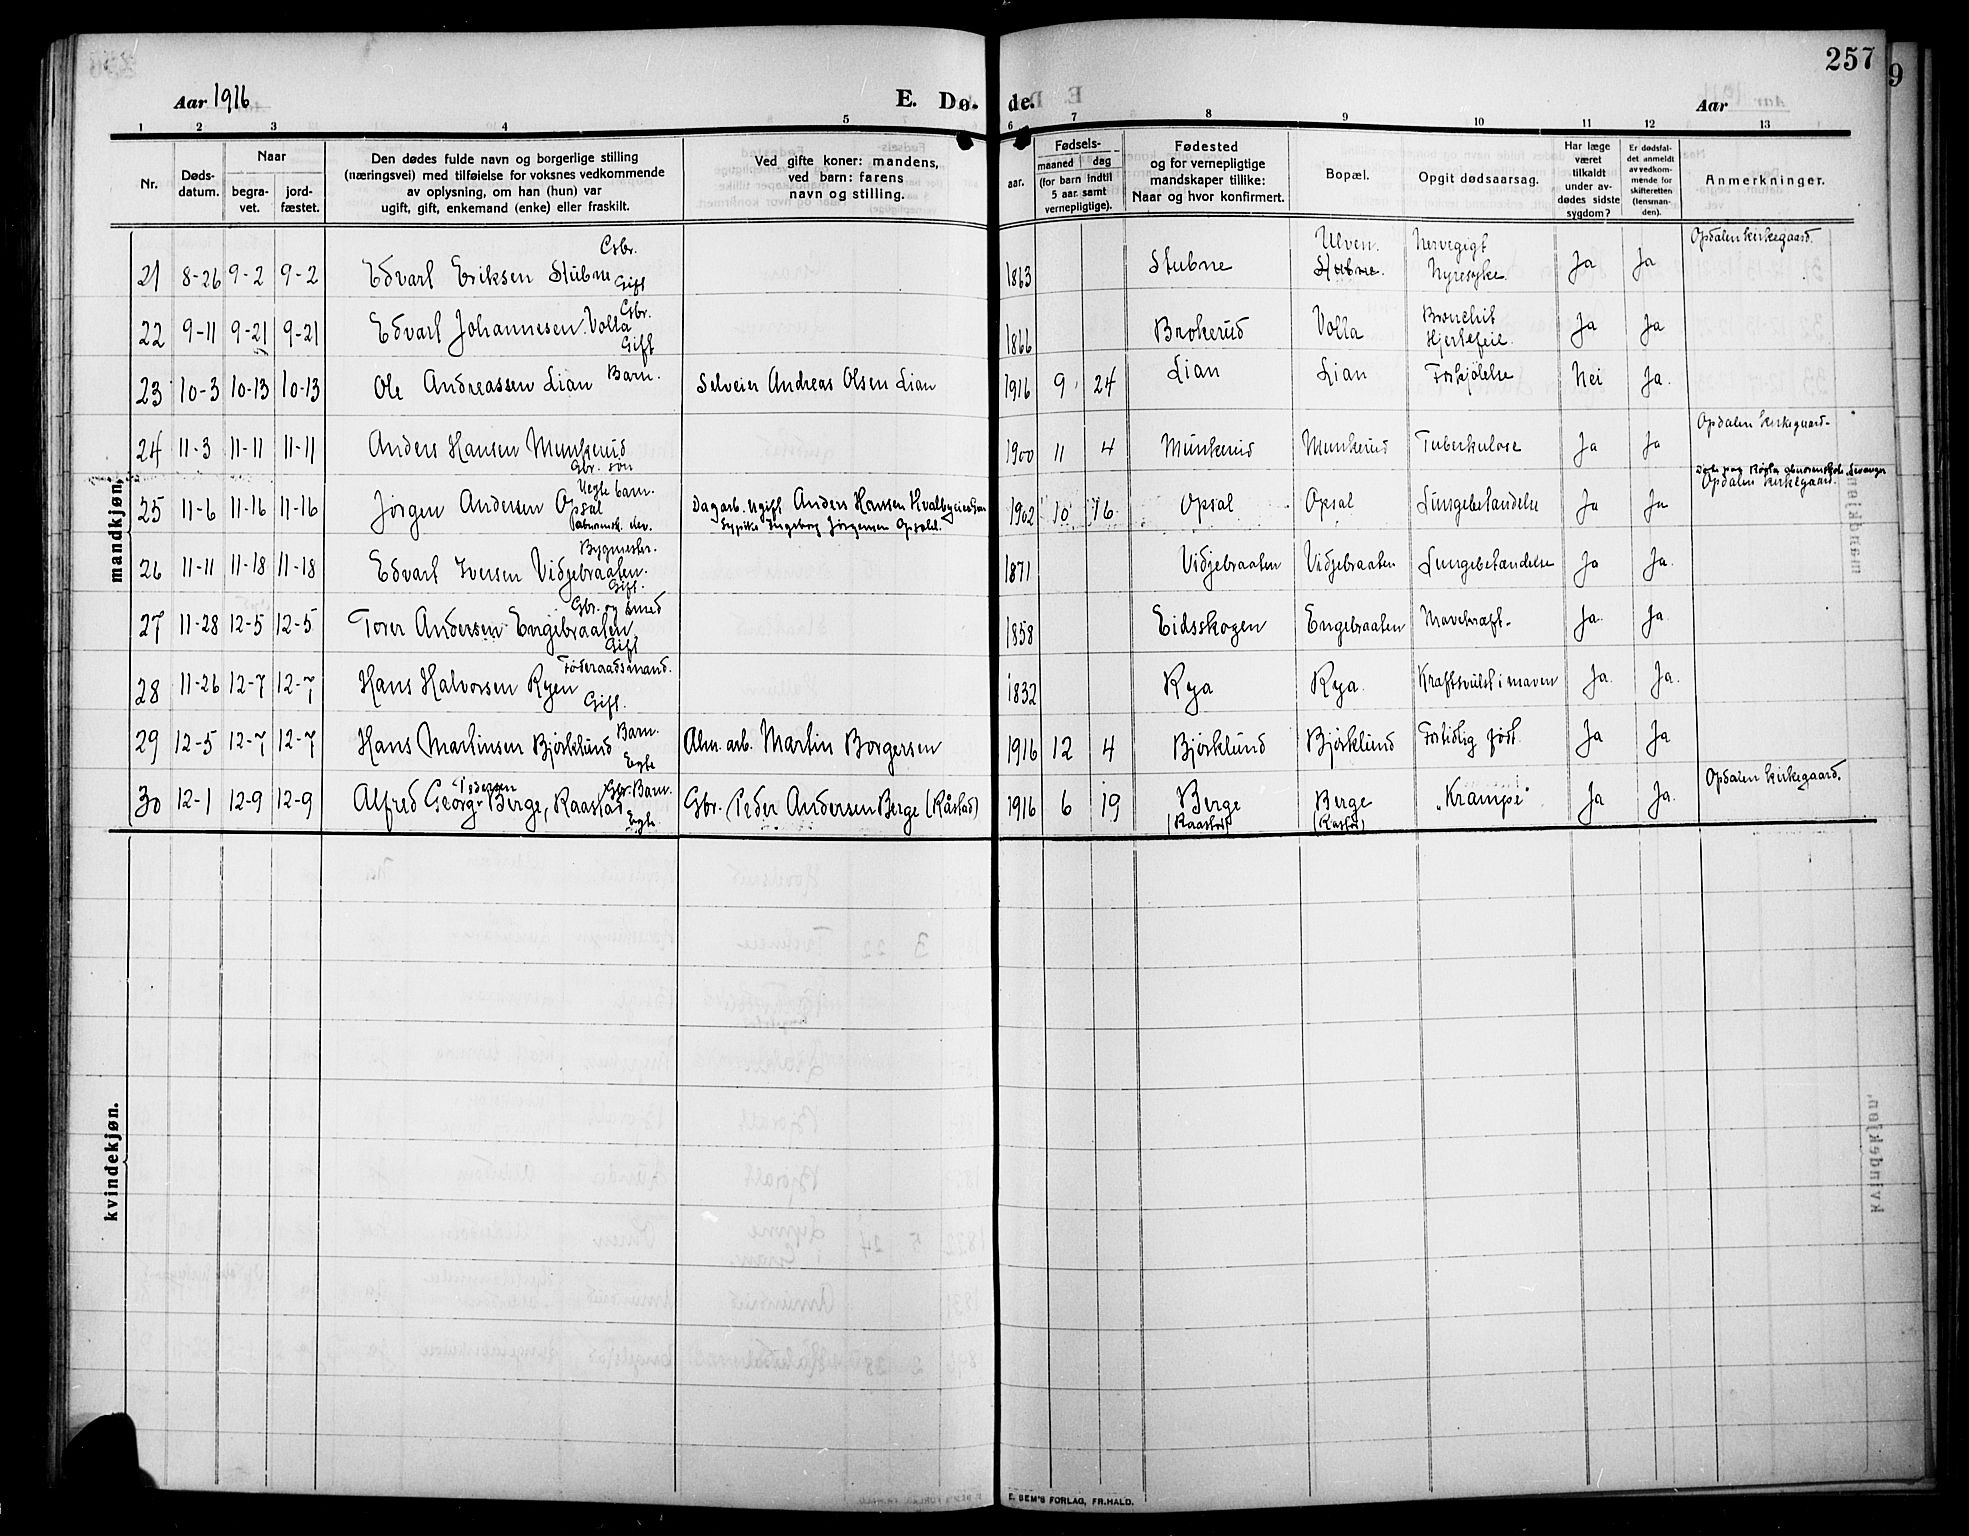 257
Aar 1916
E. Dø-
de.
Aar
1 2 3 4 5 6 7 8 9 10 11 12 13
Nr.
Døds-
datum.
Naar
begra-
vet.
jord-
fæstet.
Den dødes fulde navn og borgerlige stilling
(næringsvei) med tilføielse for voksnes vedkommende
av oplysning, om han (hun) var
ugift, gift, enkemand (enke) eller fraskilt.
Ved gifte koner: mandens,
ved barn: farens
navn og stilling.
Fødsels-
aar.
maaned
dag
(for barn indtil
5 aar samt
vernepligtige).
Fødested
og for vernepligtige
mandskaper tillike:
Naar og hvor konfirmert.
Bopæl.
Opgit dødsaarsag.
Har læge
været
tilkaldt
under av-
dødes sidste
sygdom?
Er dødsfal-
det anmeldt
av vedkom-
mende for
skifteretten
(lensman-
den).
Anmerkninger.
mandkjøn,
21 8-26 9-2 9-2 Edvart Eriksen Stubne Gbr. Gift 1863 Stubne Ulven. Stubne. Nyresyke. Ja Ja Opdalen kirkegaard.
22 9-11 9-21 9-21 Edvart Johannesen Volla Gbr. Gift 1866 Brokerud Volla Bronchit Hjertefeil. Ja Ja
23 10-3 10-13 10-13 Ole Andreassen Lian Barn. Selveier Andreas Olsen Lian 1916 9 24 Lian Lian Forkjølelse Nei Ja.
24 11-3 11-11 11-11 Anders Hansen Munkerud Gbr. søn 1900 11 4 Munkerud Munkerud Tuberkulose Ja Ja Opdalen kirkegaard.
25 11-6 11-16 11-16 Jørgen Andersen Opsal Uegte barn. Dagarb. ugift Anders Hansen Ingeborg Jørgensen Opsal. 1902 10 16 Opsal Opsal Lungebetændelse Ja Ja Opdalen kirkegaard.
26 11-11 11-18 11-18 Edvart Iversen Vidjebraaten. Bygmester. Gift. 1871 Vidjebraaten Vidjebraaten Lungebetændelse Ja Ja.
27 11-28 12-5 12-5 Torer Andersen Engebraaten, Gbr. og smed Gift 1858 Eidsskogen Engebraaten Mavekræft. Ja. Ja.
28 11-26 12-7 12-7 Hans Halvorsen Ryen Føderaadsmand. Gift. 1832 Rya Rya. Kræftsvulst i maven Ja. Ja.
29 12-5 12-7 12-7 Hans Martinsen Bjørklund Barn. Egte Alm. arb. Martin Borgersen 1916 12 4 Bjørklund Bjørklund Fortidlig født. Ja Ja
30 12-1 12-9 12-9 Alfred Georg Pedersen Berge, Raastad Gbr. Barn. Egte. Gbr. Peder Andersen Berge (Råstad) 1916 6 19 Berge (Raastad) Berge (Rastad) "Krampe" Ja Ja. Opdalen kirkegaard.
kvindekjøn.
E. SEM'S FORLAG, FR.HALD.